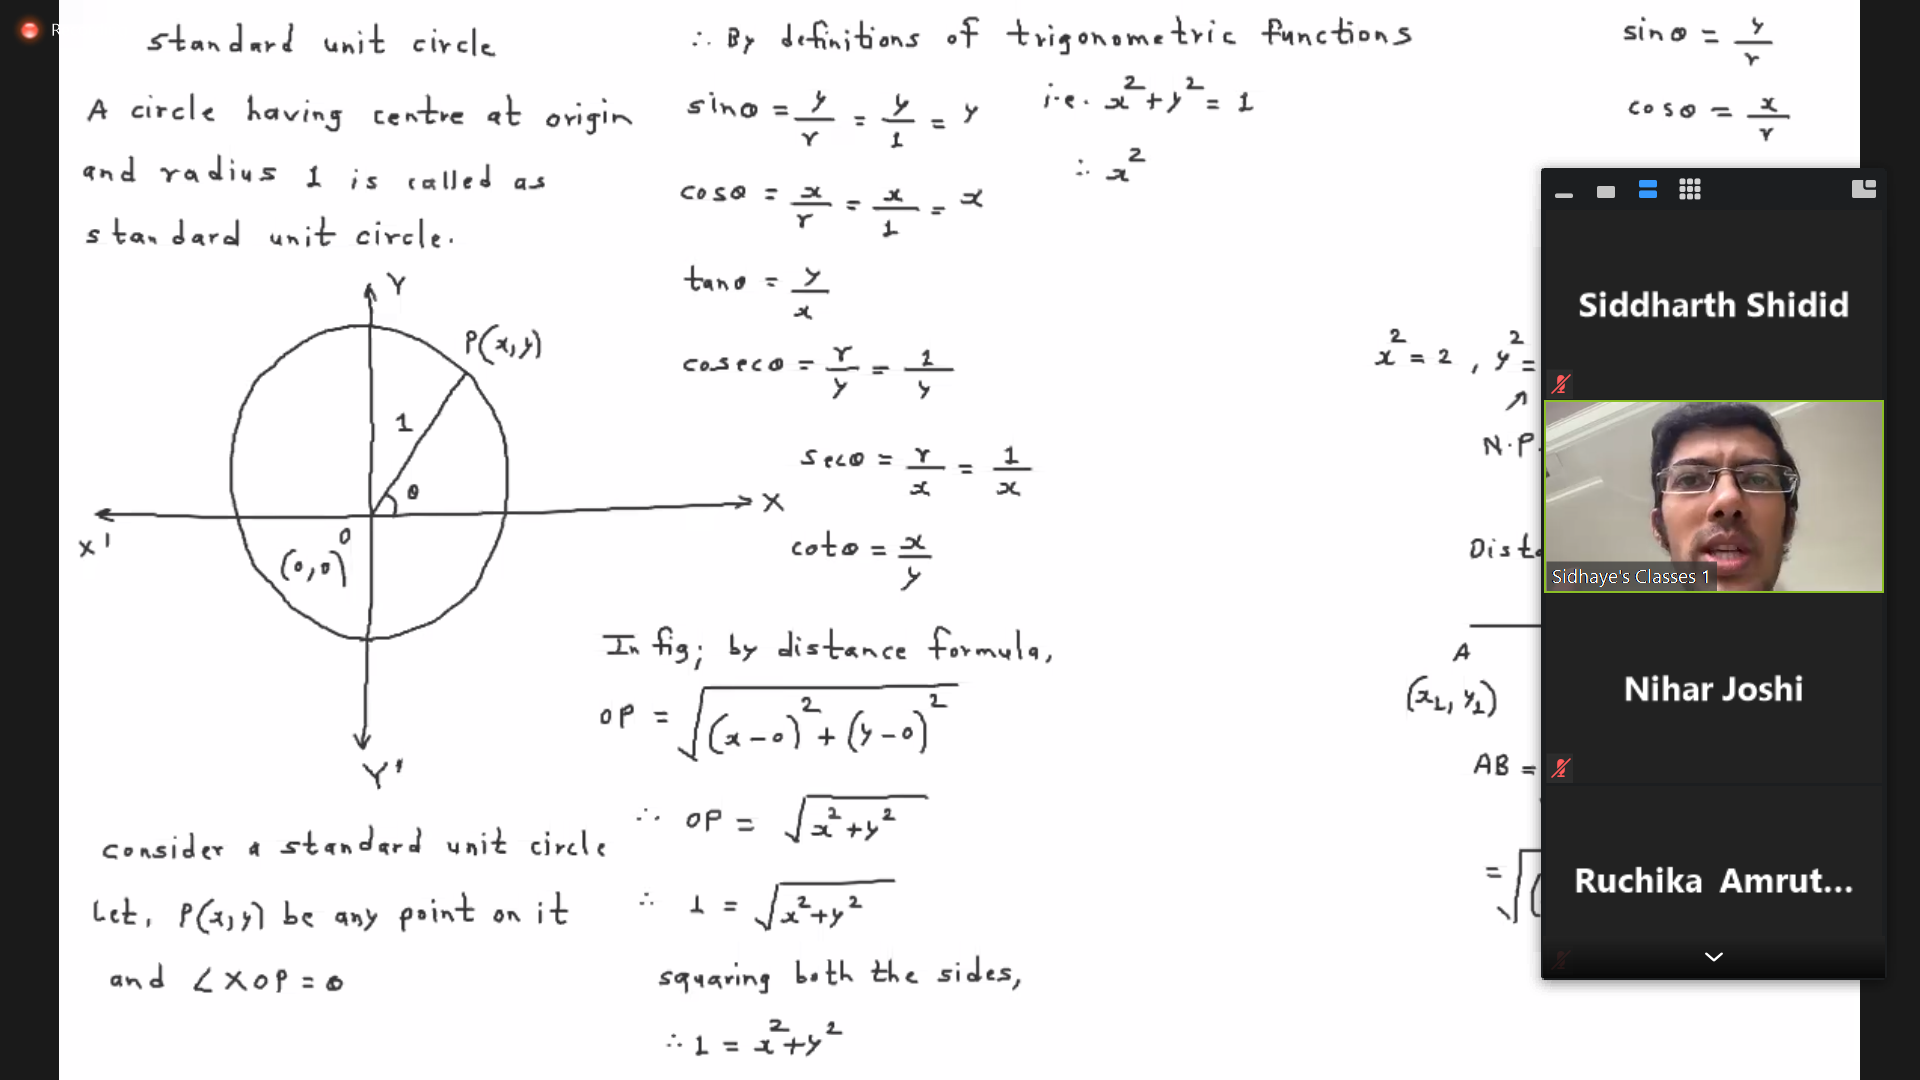 standard unit circle
A circle having centre at origin
and radius 1 is called as
standard unit circle.
Y
P(x,y)
1
θ
X
X'
O
(0,0)
Y'
consider a standard unit circle
Let, P(x,y) be any point on it
and ∠XOP = θ
∴ By definitions of trigonometric functions
sinθ = y/r = y/1 = y
cosθ = x/r = x/1 = x
tanθ = y/x
cosecθ = r/y = 1/y
secθ = r/x = 1/x
cotθ = x/y
In fig; by distance formula,
OP = √((x-0)²+(y-0)²)
∴ OP = √(x²+y²)
∴ 1 = √(x²+y²)
squaring both the sides,
∴ 1 = x²+y²
i.e. x²+y² = 1
∴ x²
sinθ = y/r
cosθ = x/r
x² = 2 , y² =
N.P.
A
(x₁, y₁)
AB =
= √(
Siddharth Shidid
Sidhaye's Classes 1
Nihar Joshi
Ruchika Amrut...